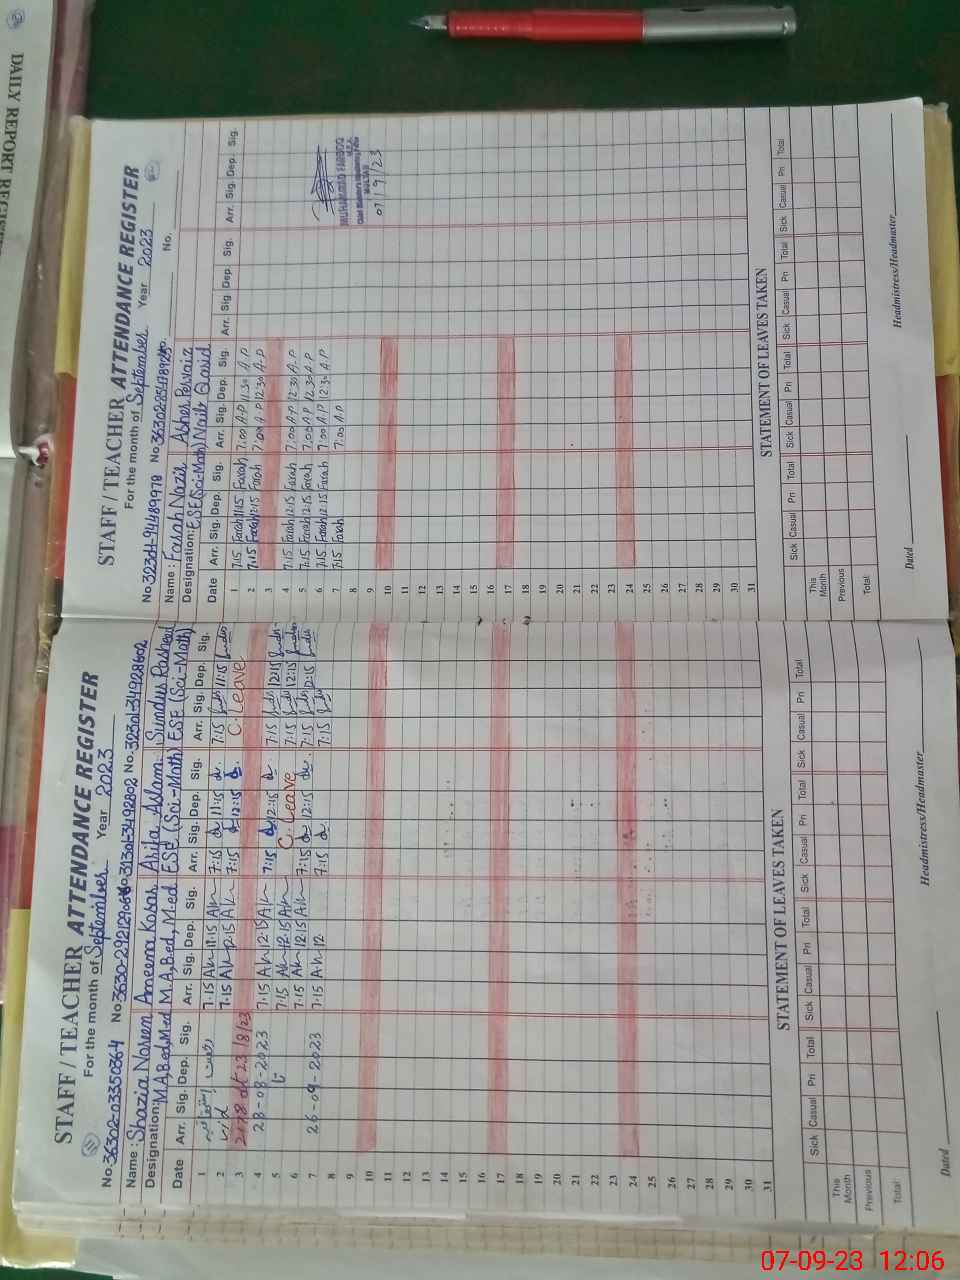 DAILY REPORT REGIS
STAFF / TEACHER ATTENDANCE REGISTER
For the month of September Year 2023
No. 36302-03350364 No. 3630-2921290 No. 31301-3492802 No. 32301-34928602
Name : Shazia Noreen Ameena Kosar Arifa Aslam. Sundus Rasheed
Designation: M.A,B.ed,M.ed M.A,B.ed,M.ed ESE (Sci-Math) ESE (Sci-Math)
Date Arr. Sig. Dep. Sig. Arr. Sig. Dep. Sig. Arr. Sig. Dep. Sig. Arr. Sig. Dep. Sig.
1 7:15 11:15 7:15 11:15 7:15 11:15
2 7:15 12:15 7:15 12:15 C. Leave
3
4 28-08-2023 7:15 12:15 7:15 12:15 7:15 12:15
5 7:15 12:15 C. Leave 7:15 12:15
6 7:15 12:15 7:15 12:15 7:15 12:15
7 26-09-2023 7:15 12 7:15 7:15
8
9
10
11
12
13
14
15
16
17
18
19
20
21
22
23
24
25
26
27
28
29
30
31
STATEMENT OF LEAVES TAKEN
Sick Casual Pri Total Sick Casual Pri Total Sick Casual Pri Total Sick Casual Pri Total
This Month
Previous
Total:
Dated Headmistress/Headmaster
STAFF / TEACHER ATTENDANCE REGISTER
For the month of September Year 2023
No. 32304-94489978 No. No.
Name : Farah Nazil Asher Pervaiz
Designation: ESE(Sci-Math) Naib Qasid
Date Arr. Sig. Dep. Sig. Arr. Sig. Dep. Sig. Arr. Sig. Dep. Sig. Arr. Sig. Dep. Sig.
1 7:15 Farah 11:15 Farah 7:00 A.P 11:30 A.P
2 7:15 Farah 12:15 Farah 7:00 A.P 12:30 A.P
3
4 7:15 Farah 12:15 Farah 7:00 A.P 12:30 A.P
5 7:15 Farah 12:15 Farah 7:00 A.P 12:30 A.P
6 7:15 Farah 12:15 Farah 7:00 A.P 12:30 A.P
7 7:15 Farah 7:00 A.P
8
9
10
11
12
13
14
15
16
17
18
19
20
21
22
23
24
25
26
27
28
29
30
31
MUHAMMAD FAROOQ
MULTAN
07/9/23
STATEMENT OF LEAVES TAKEN
Sick Casual Pri Total Sick Casual Pri Total Sick Casual Pri Total Sick Casual Pri Total
This Month
Previous
Total:
Dated Headmistress/Headmaster
07-09-23 12:06